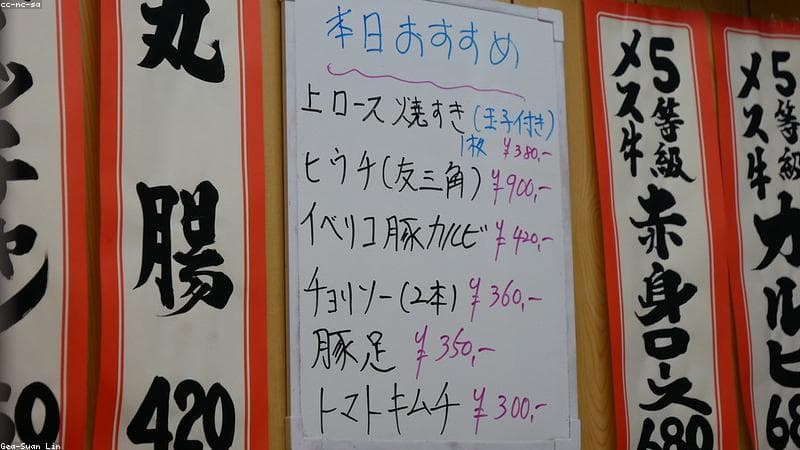 cc-nc-sa
本日おすすめ
上ロース焼すき(玉子付き)
1枚 ¥380,-
ヒウチ(友三角) ¥900,-
イベリコ豚カルビ ¥420,-
チョリソー(2本) ¥360,-
豚足 ¥350,-
トマトキムチ ¥300,-
丸腸
420
ッチャン
50
5等級
メス牛
赤身ロース
680
5等級
メス牛
カルビ
68
Gea-Suan Lin